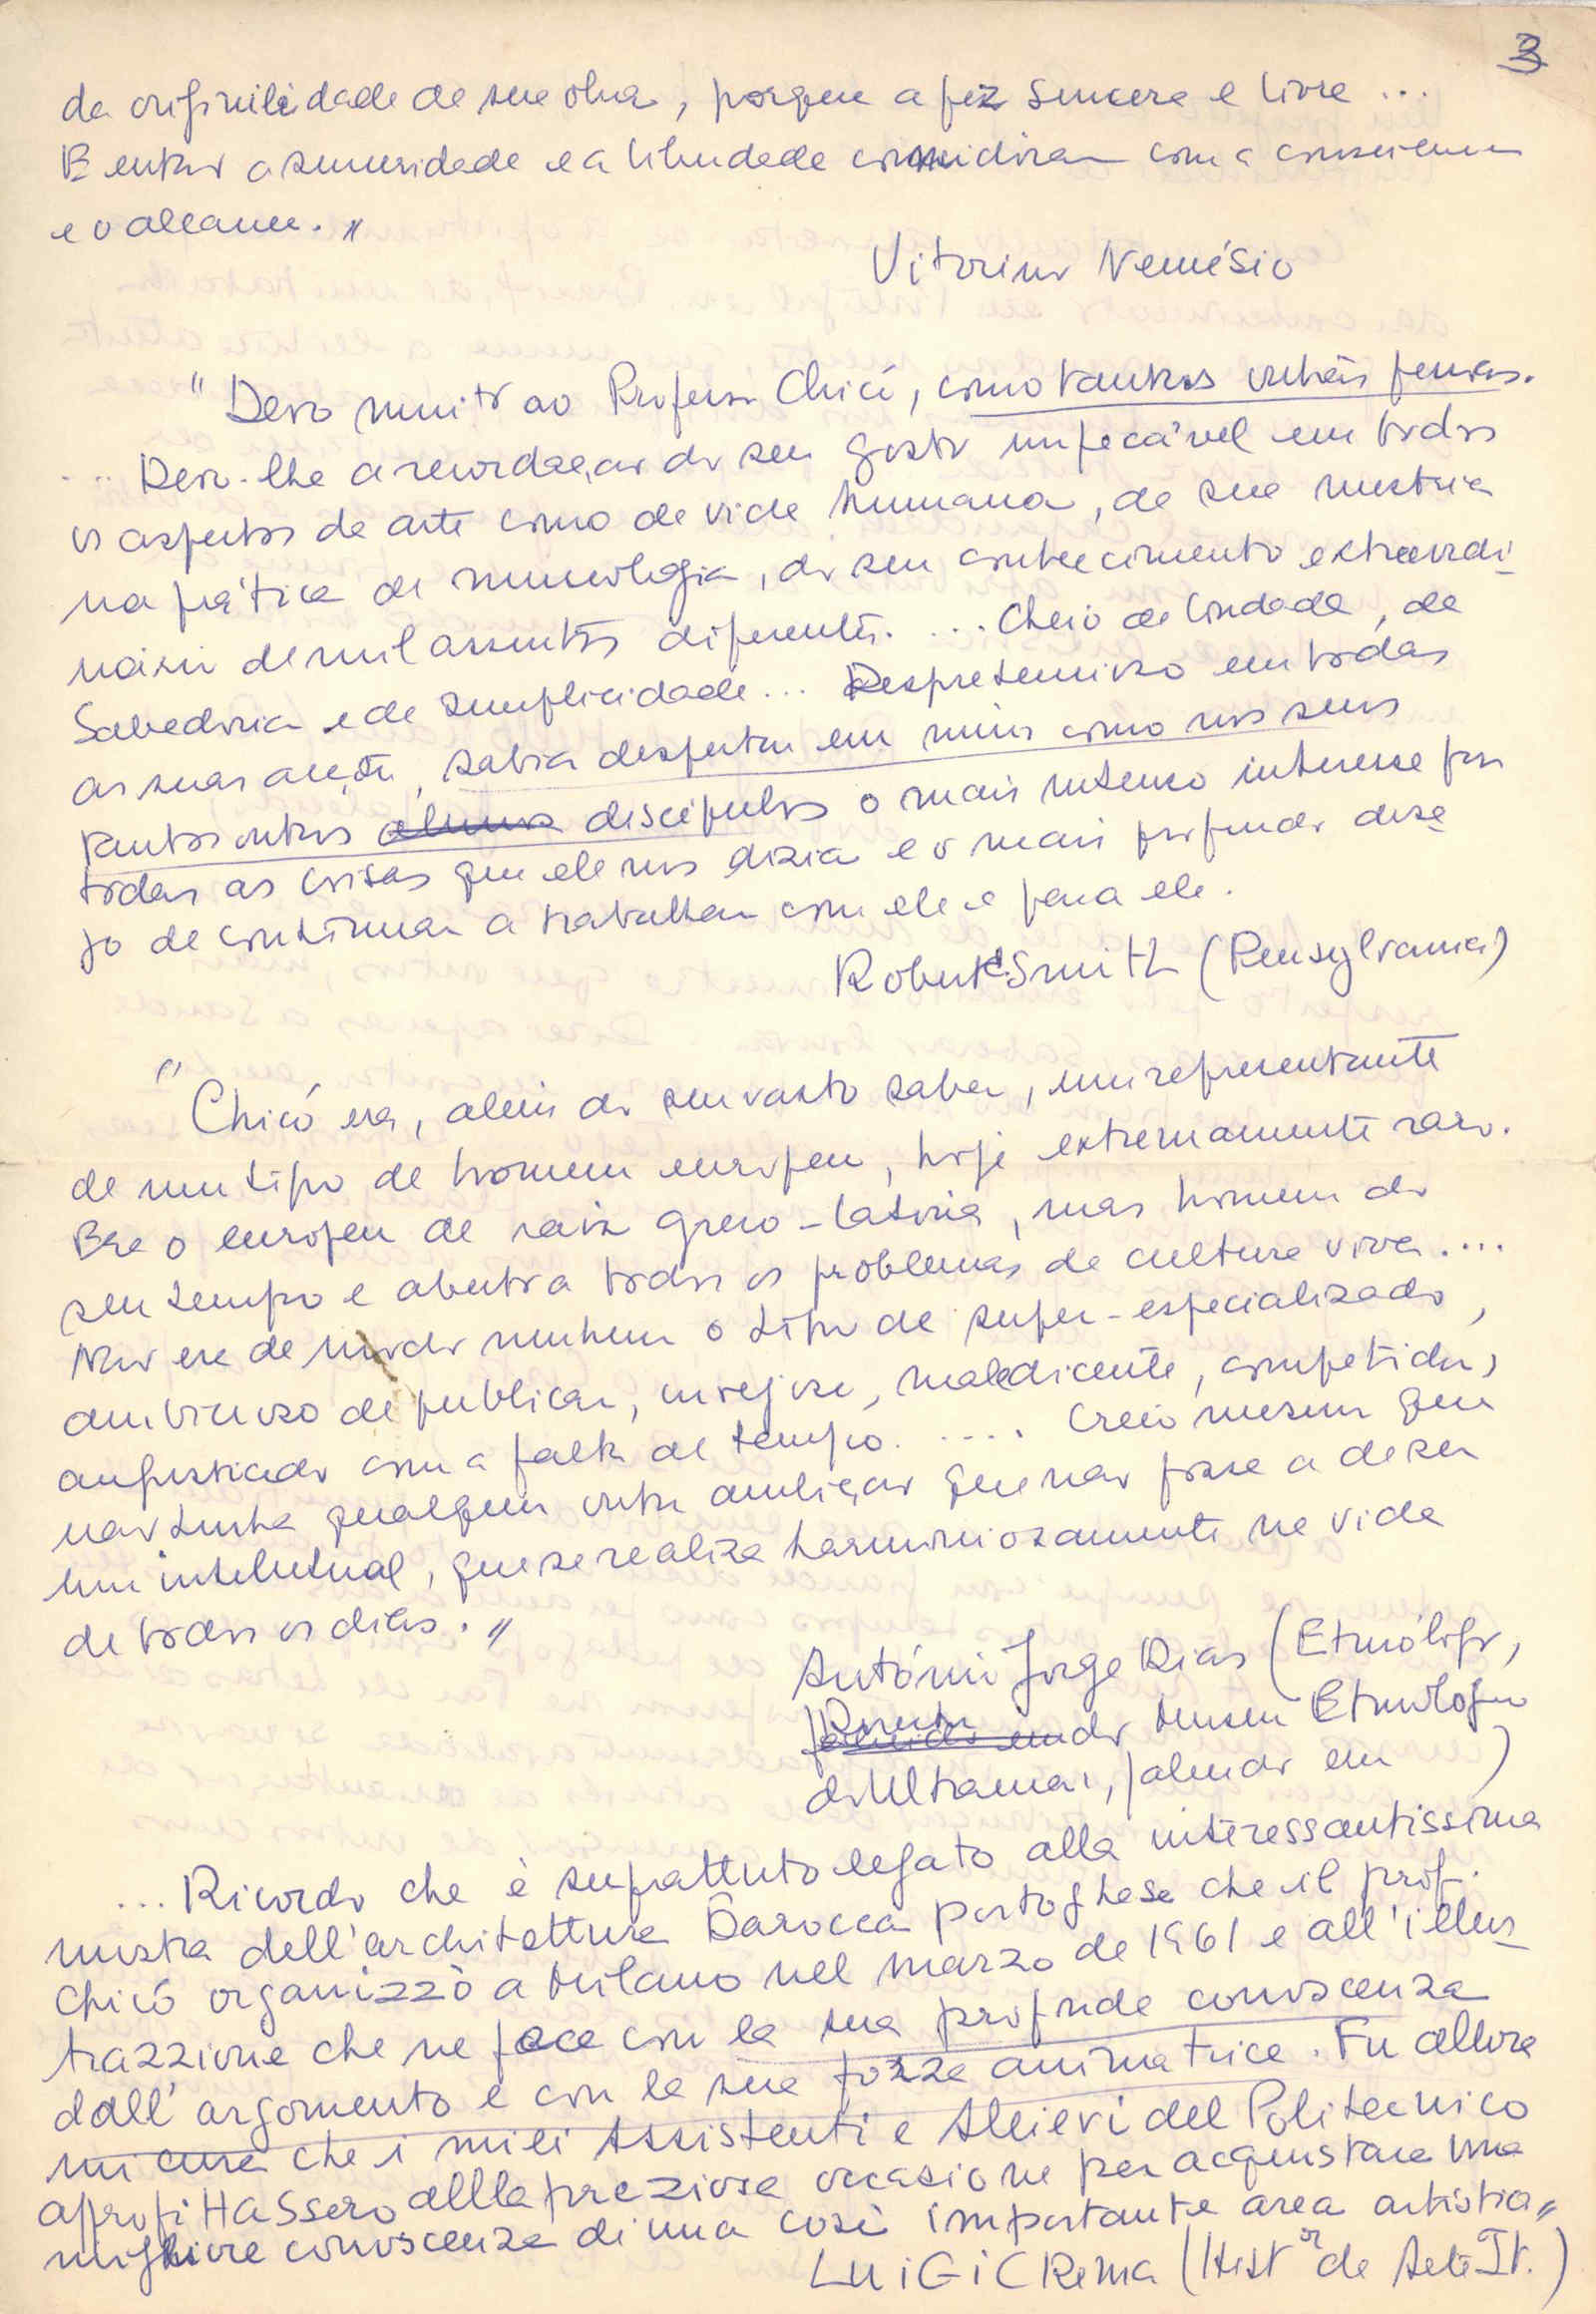 3
da originalidade de sua obra, porque a fez sincera e livre ...
E entao a sinceridade e a liberdade coincidiram com a consciencia
e o alcance."
Vitorino Nemésio
" Devo muito ao Professor Chicó, como tantas outras pessoas.
... Devo-lhe a recordação do seu gosto impecável em todos
os aspectos da arte como da vida humana, da sua mestria
na prática da museologia, do seu conhecimento extraordi-
nário de mil assuntos diferentes. ... Cheio de bondade, de
Sabedoria e de simplicidade... Despretensioso em todas
as suas acções, sabia despertar em mim como nos seus
tantos outros alunos discípulos o mais intenso interesse por
todas as coisas que ele nos dizia e o mais profundo dese-
jo de continuar a trabalhar com ele e para ele.
Robert C. Smith (Pensylvania)
" Chicó era, além do seu vasto saber, um representante
de um tipo de homem europeu, hoje extremamente raro.
Era o europeu de raiz greco-latina, mas homem do
seu tempo e aberto a todos os problemas da cultura viva....
Não era de modo nenhum o tipo de super-especializado,
ambicioso de publicar, invejoso, maledicente, competidor,
angustiado com a falta de tempo. .... Creio mesmo que
não tinha qualquer outra ambição que não fosse a de ser
um intelectual, que se realiza harmoniosamente na vida
de todos os dias."
António Jorge Dias (Etnólogo,
Director do Museu Etnológico
do Ultramar, falecido em )
... Ricordo che è soprattutto legato alla interessantissima
mostra dell'architettura Barocca portoghese che il prof.
Chicó organizzò a Milano nel marzo de 1961 e all'illus-
trazzione che ne fece con la sua profonda conoscenza
dall'argomento e con la sua forza animatrice. Fu allora
mi cura che i miei Assistenti e Allievi del Politecnico
aprofittassero della preziosa occasione per acquistare una
migliore conoscenza di una così importante area artistica"
LUIGI CREMA (Histor de Arte It.)